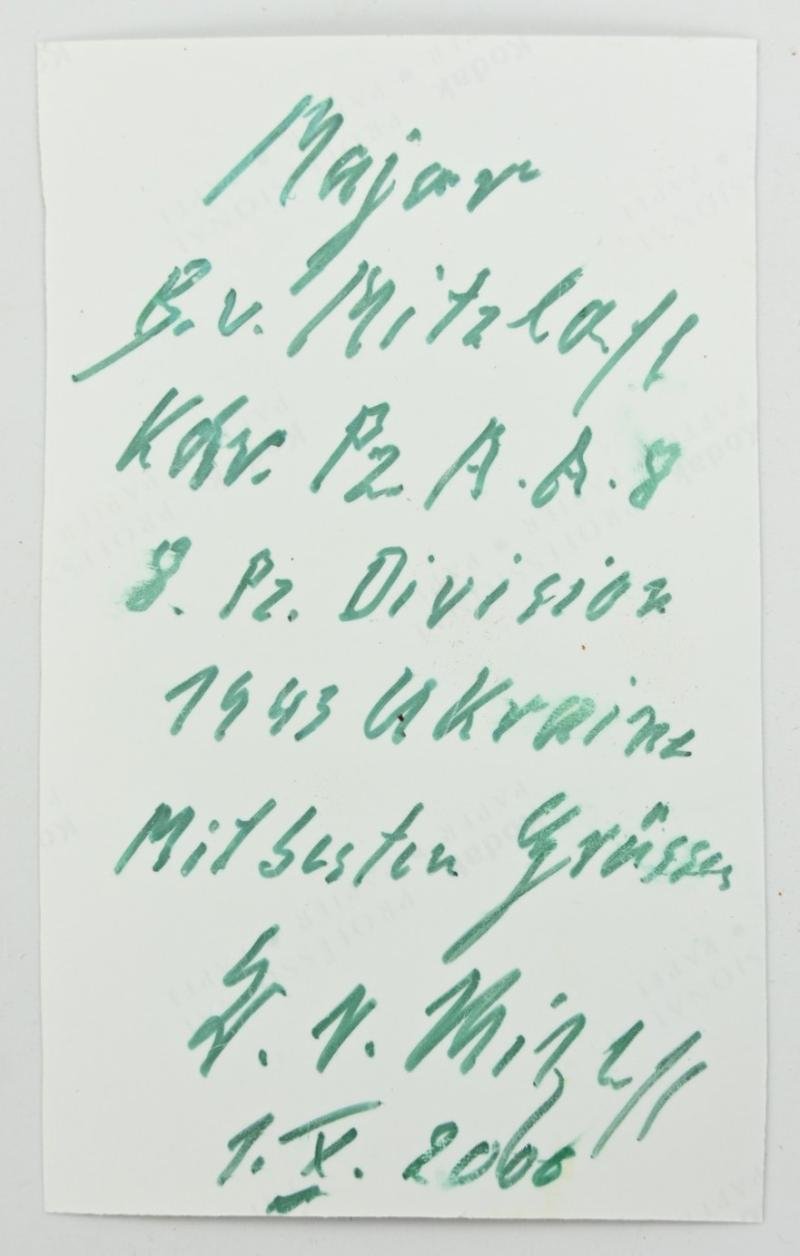 Major
B. v. Mitzlaff
Kdr. Pz A. A. 8
8. Pz. Division
1943 Ukraine
Mit besten Grüssen
B. v. Mitzlaff
1. X. 2006
Kodak